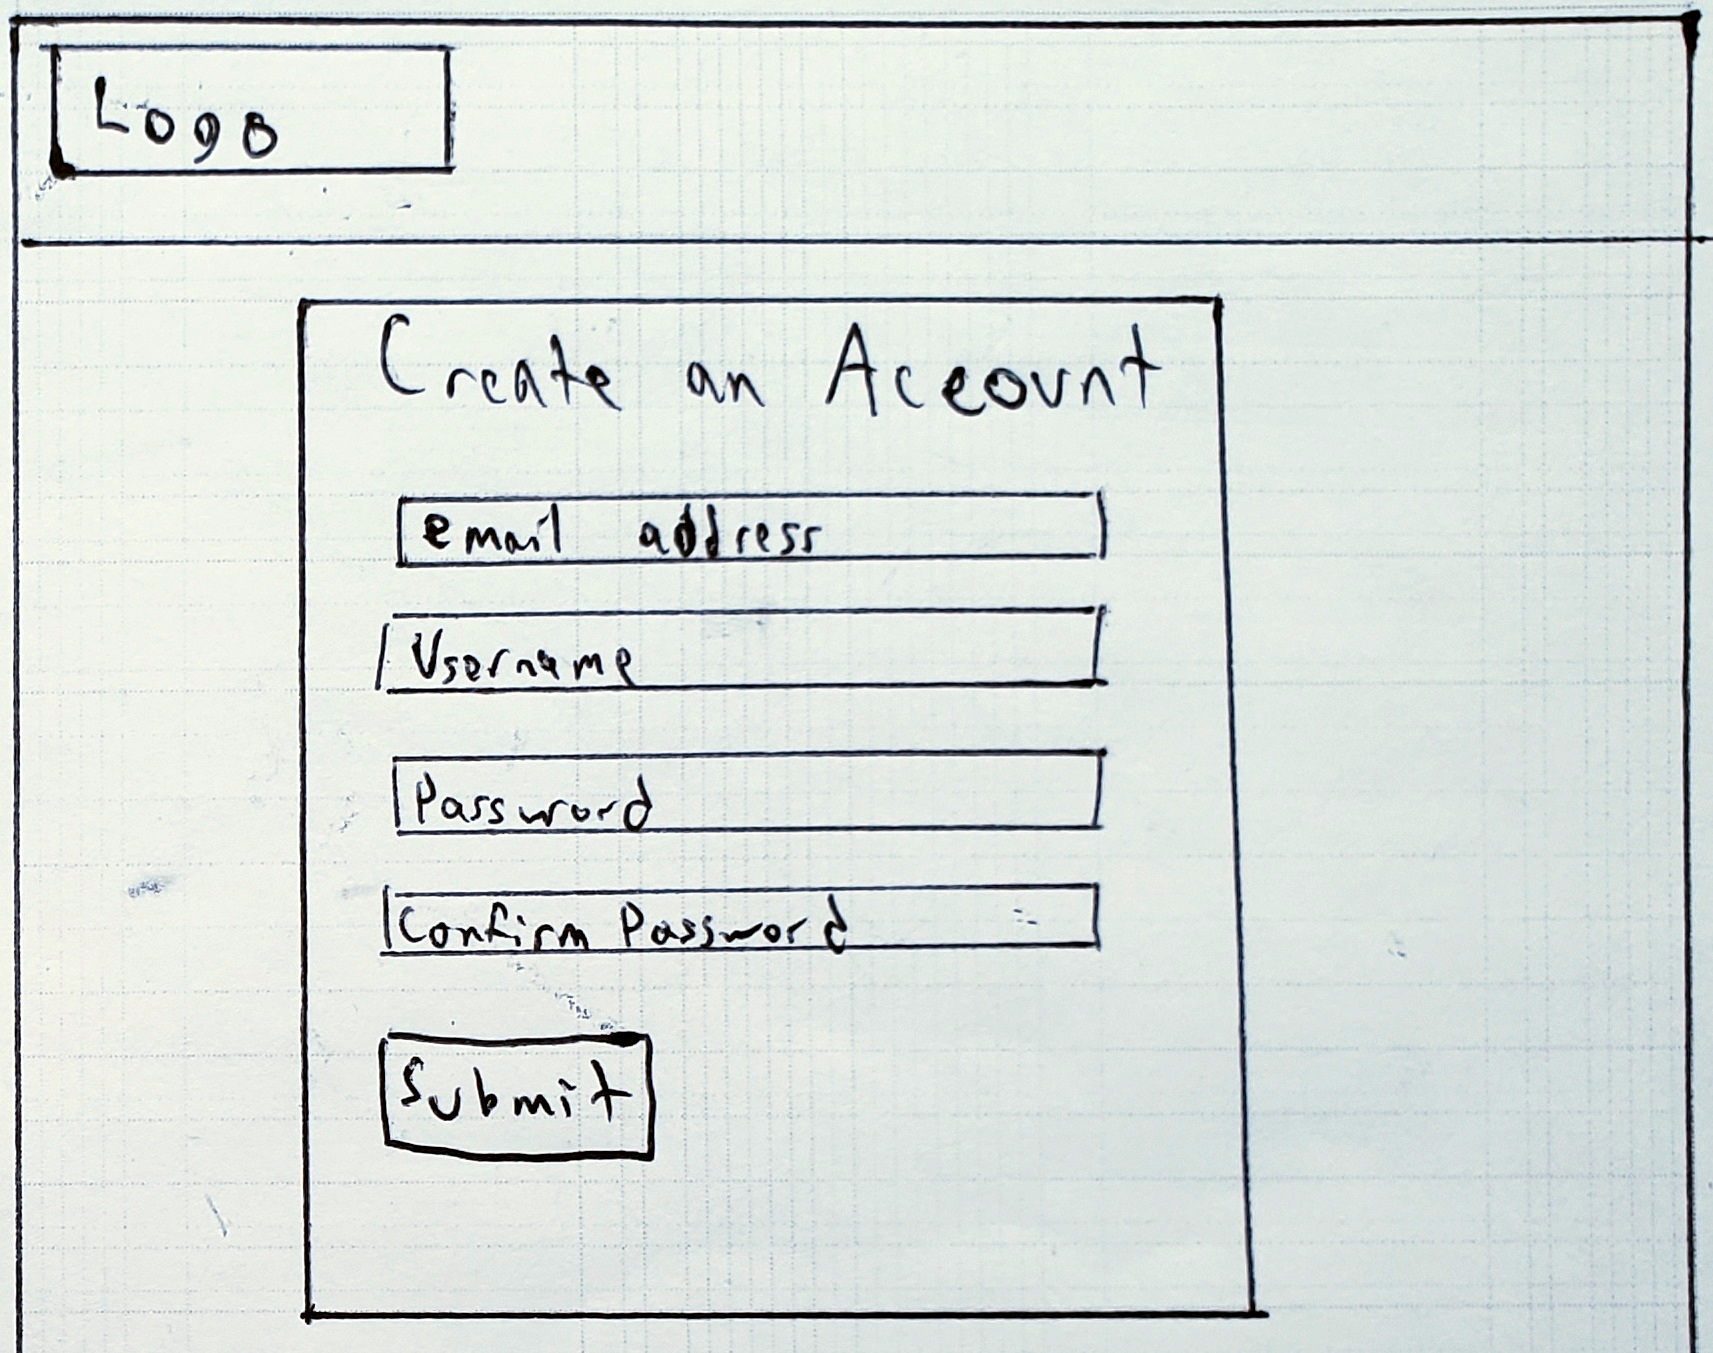 Logo
Create an Account
email address
Username
Password
Confirm Password
Submit